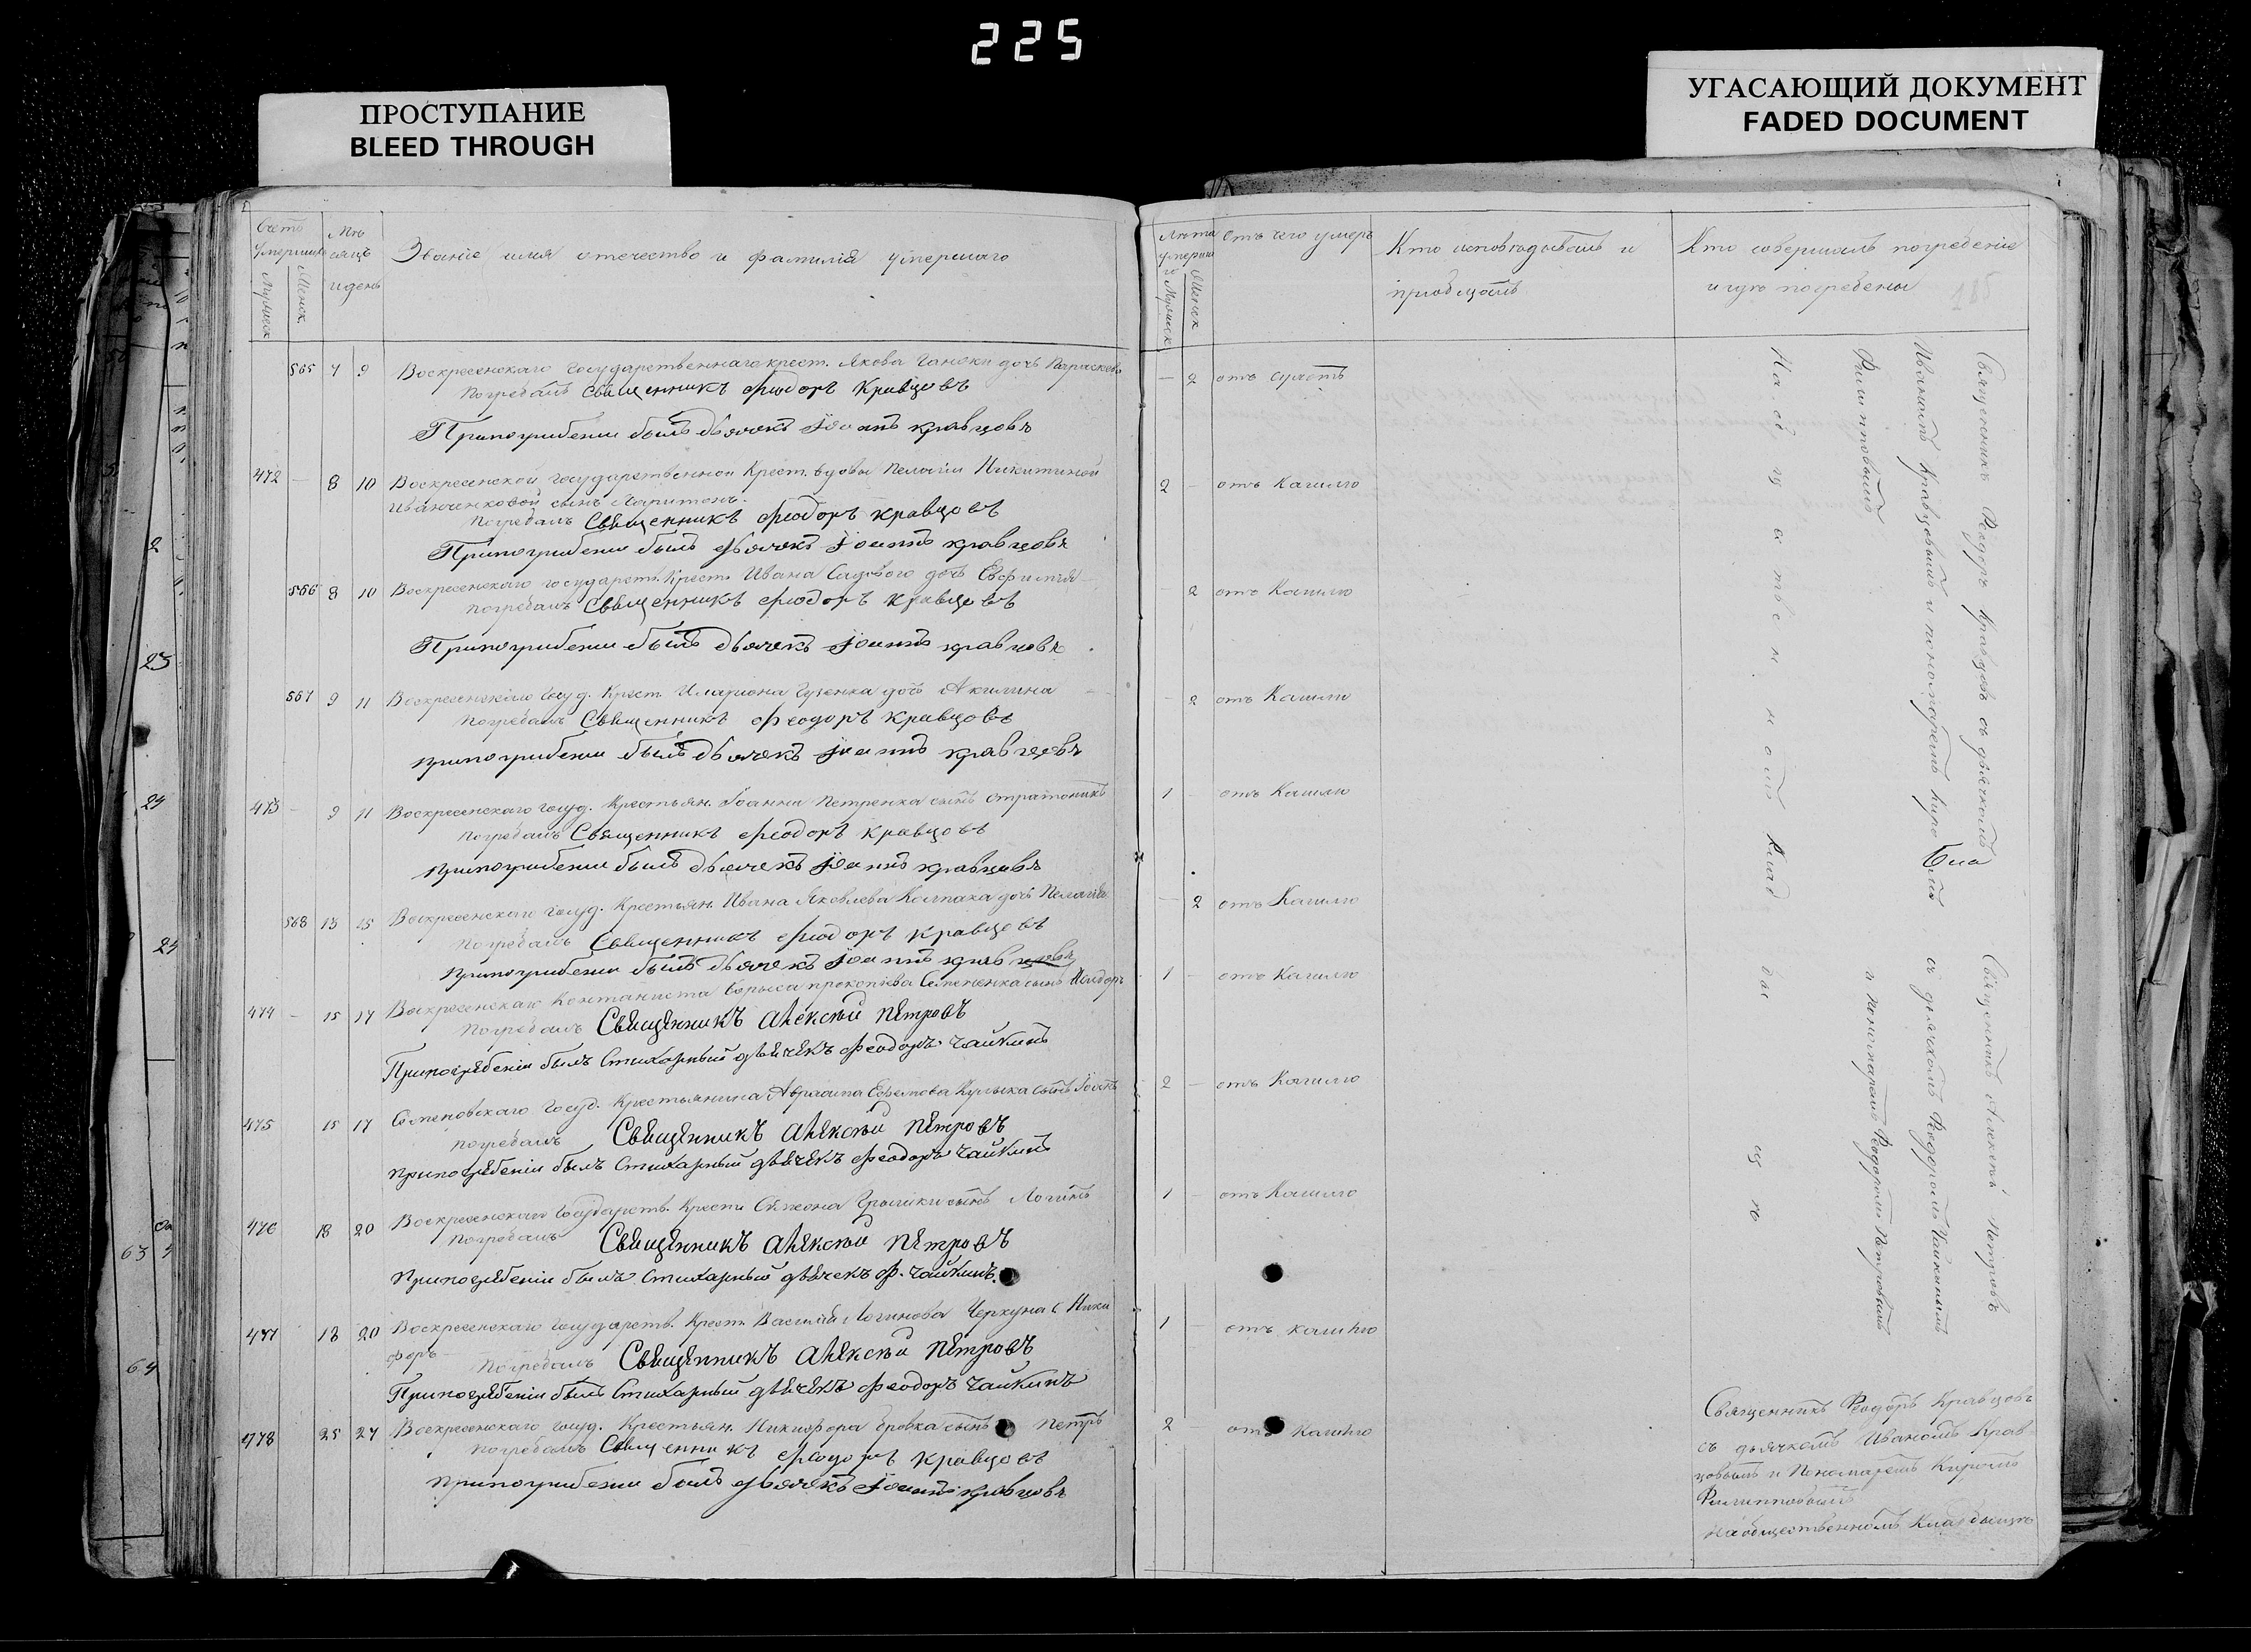 225
ПРОСТУПАНИЕ
BLEED THROUGH
УГАСАЮЩИЙ ДОКУМЕНТ
FADED DOCUMENT
Счетъ умершихъ
Мужеск.
Женск.
Мѣсяцъ и день
Званіе имя отечество и фамилія умершаго
565 7 9 Воскресенскаго государственнаго крест. Якова дочь Параскева
Погребалъ Священникъ Феодоръ Кравцовъ
При погребении былъ дьячекъ Іоаннъ Кравцовъ
472 – 8 10 Воскресенской государственной Крест. вдовы Пелагіи Никитиной
Иванченковой сынъ Харитонъ.
Погребалъ Священникъ Феодоръ Кравцовъ
При погребении былъ дьячекъ Іоаннъ Кравцовъ
566 8 10 Воскресенскаго государств. Крест. Ивана Садового дочь Евфимія
погребалъ Священникъ Феодоръ Кравцовъ
При погребении былъ дьячекъ Іоаннъ Кравцовъ
567 9 11 Воскресенскаго госуд. Крест. Илариона Гузенка дочь Акилина
погребалъ Священникъ Феодоръ Кравцовъ
при погребении былъ дьячекъ Іоаннъ Кравцовъ
473 – 9 11 Воскресенскаго госуд. Крестьян. Іоанна Петренка сынъ Стратоникъ
погребалъ Священникъ Феодоръ Кравцовъ
при погребении былъ дьячекъ Іоаннъ Кравцовъ
568 13 15 Воскресенскаго госуд. Крестьян. Ивана Яковлева Колпака дочь Пелагія
погребалъ Священникъ Феодоръ Кравцовъ
при погребении былъ дьячекъ Іоаннъ Кравцовъ
474 – 15 17 Воскресенскаго Кантониста Прокопіева сынъ
погребалъ Священникъ Алексѣй Петровъ
При погребеніи былъ Стихарный дьячекъ Феодоръ Чайкинъ
475 15 17 Семеновскаго Госуд. Крестьянина Авраама Ефимова сынъ
погребалъ Священникъ Алексѣй Петровъ
При погребеніи былъ Стихарный дьячекъ Феодоръ Чайкинъ
476 18 20 Воскресенскаго Государств. Крест. Симеона сынъ Логинъ
погребалъ Священникъ Алексѣй Петровъ
При погребеніи былъ Стихарный дьячекъ Ф. Чайкинъ.
477 18 20 Воскресенскаго государств. Крест. Василія Логинова Черкуна с. Ники
форъ
погребалъ Священникъ Алексѣй Петровъ
При погребеніи былъ Стихарный дьячекъ Феодоръ Чайкинъ
478 25 27 Воскресенскаго госуд. Крестьян. Никифора сынъ Петръ
погребалъ Священникъ Феодоръ Кравцовъ
при погребении былъ дьячекъ Іоаннъ Кравцовъ
Лѣта умершаго
Мужеск
Женск
отъ чего умеръ
Кто исповѣдывалъ и
приобщалъ
Кто совершалъ погребеніе
и гдѣ погребены
– 2
2 – отъ Кашлю
– 2 отъ Кашлю
– 2 отъ Кашлю
1 – отъ Кашлю
– 2 отъ Кашлю
1 – отъ Кашлю
2 – отъ Кашлю
1 – отъ Кашлю
1 – отъ кашлю
2 – отъ кашлю
Священникъ Феодоръ Кравцовъ съ дьячкомъ
Иваномъ Кравцовымъ и пономаремъ Киромъ
Филипповымъ
На общественномъ Кладбищѣ
Священникъ Алексѣй Петровъ
съ дьячкомъ Феодоромъ Чайкинымъ
и пономаремъ Феодоромъ Петровымъ
Священникъ Феодоръ Кравцовъ
съ дьячкомъ Иваномъ Крав
цовымъ и Пономаремъ Киромъ
Филипповымъ
на общественномъ Кладбищѣ
2
23
24
24
63
64